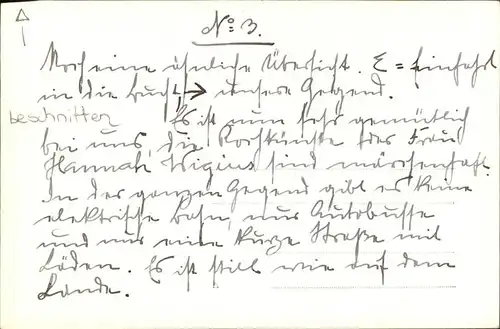 No: 3.
Noch eine ähnliche Übersicht. E = Einfahrt
in die Bucht → unsere Gegend.
beschnitten
Es ist nun sehr gemütlich
bei uns, die Kochkünste der Frau
Hannah Wigins sind märchenhaft.
In der ganzen Gegend gibt es keine
elektrische Bahn, nur Autobusse
und nur eine kurze Straße mit
Läden. Es ist still wie auf dem
Lande.